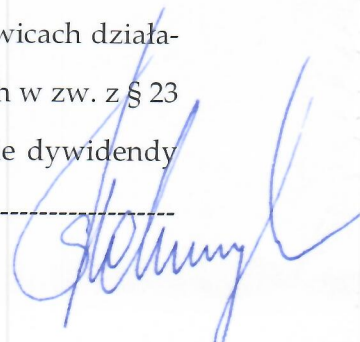 wicach działa-
w zw. z § 23
dywidendy